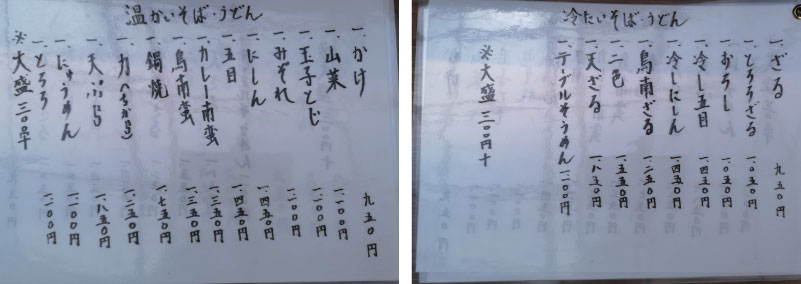 温かいそば・うどん
一、かけ 九五〇円
一、山菜 一、一〇〇円
一、玉子とじ 一、一〇〇円
一、みぞれ 一、一〇〇円
一、にしん 一、四五〇円
一、五目 一、四五〇円
一、カレー南蛮 一、三五〇円
一、鳥南蛮 一、三五〇円
一、鍋焼 一、七五〇円
一、力(ちから) 一、二五〇円
一、天ぷら 一、八五〇円
一、にゅうめん 一、一〇〇円
一、とろろ 一、一〇〇円
※大盛 三〇〇円十
冷たいそば・うどん
一、ざる 九五〇円
一、とろろざる 一、〇五〇円
一、おろし 一、〇五〇円
一、冷し五目 一、四五〇円
一、冷しにしん 一、四五〇円
一、鳥南ざる 一、二五〇円
一、二色 一、五五〇円
一、天ざる 一、八五〇円
一、テーブルそうめん 一、一〇〇円
※大盛 三〇〇円十